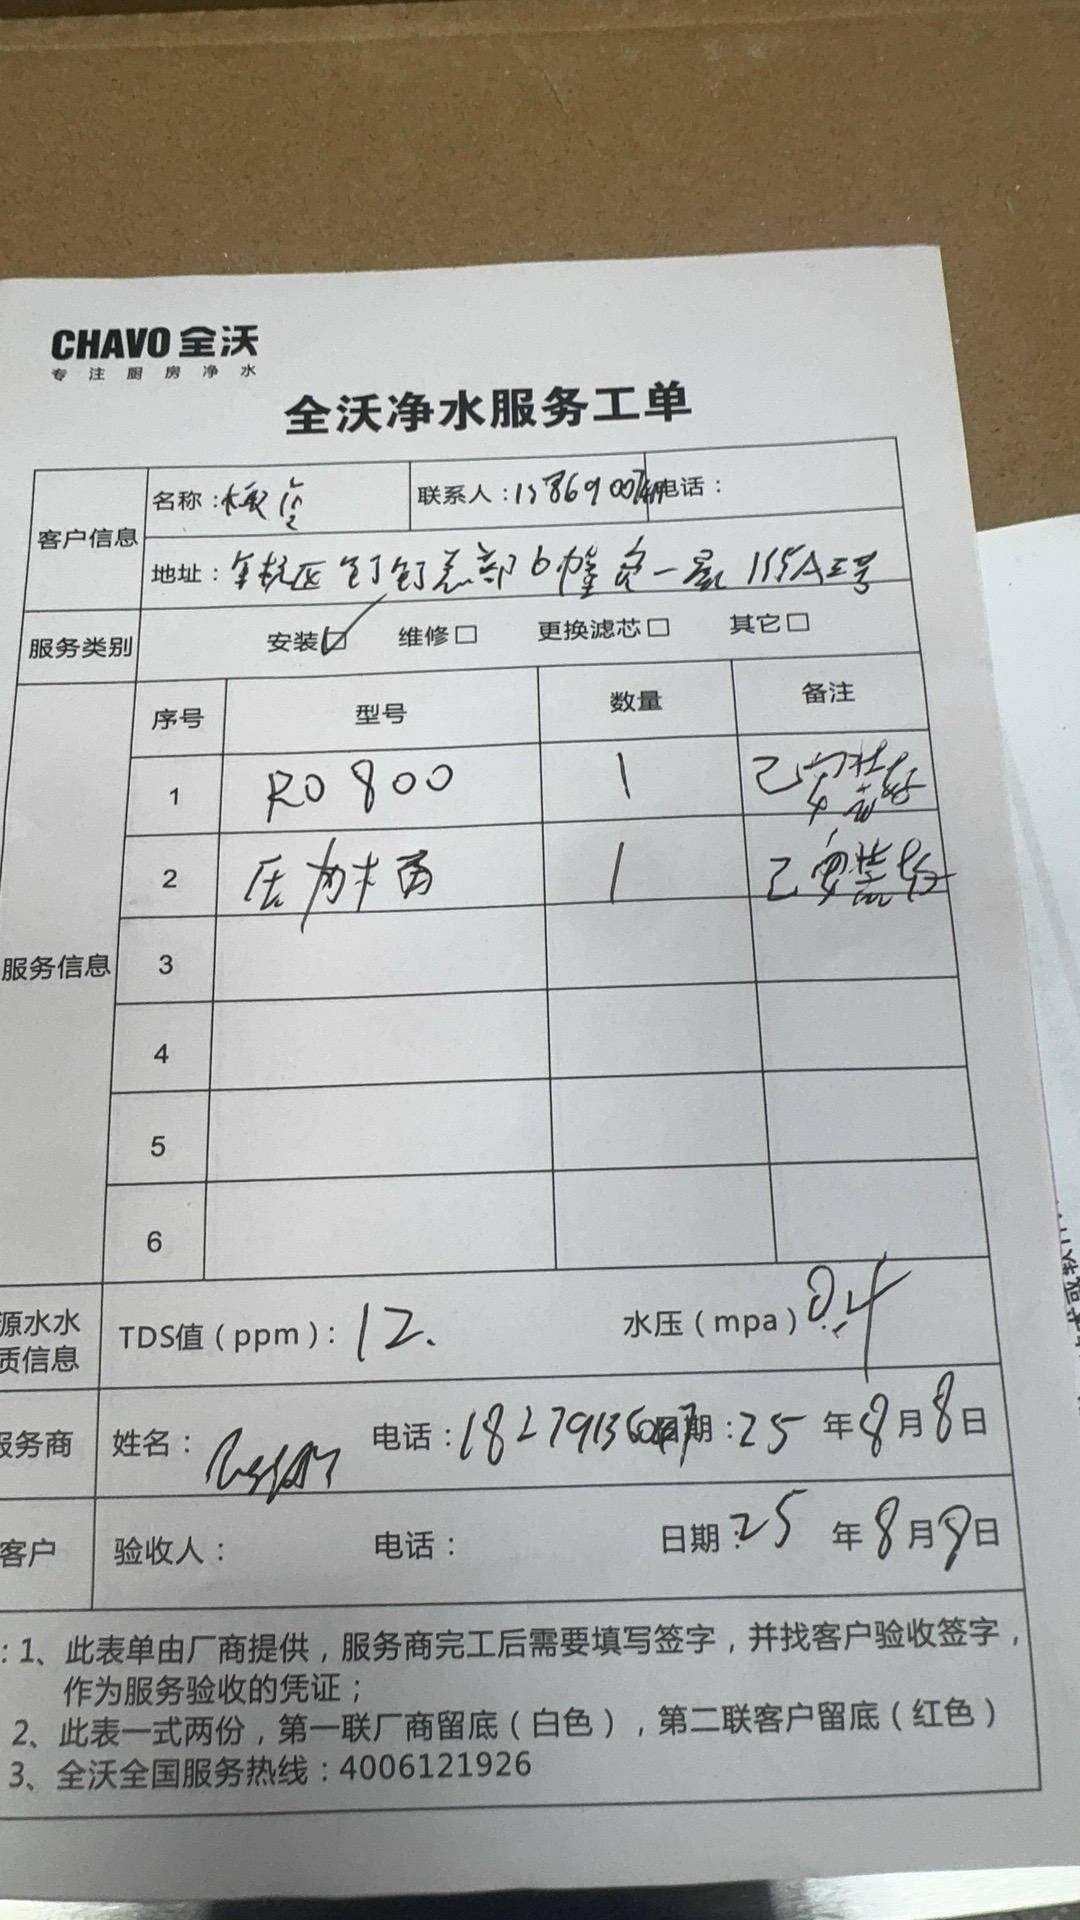 CHAVO 全沃
专注厨房净水
全沃净水服务工单
客户信息
名称：
联系人：
电话：
地址：余杭区钉钉总部6幢 一层 155A 号
服务类别
安装☑ 维修□ 更换滤芯□ 其它□
服务信息
序号 型号 数量 备注
1 RO 800 1 已安装好
2 压力桶 1 已安装好
3
4
5
6
源水水质信息
TDS值（ppm）：12. 水压（mpa）0.4
服务商
姓名： 电话： 日期：25年8月8日
客户
验收人： 电话： 日期：25年8月8日
：1、此表单由厂商提供，服务商完工后需要填写签字，并找客户验收签字，
作为服务验收的凭证；
2、此表一式两份，第一联厂商留底（白色），第二联客户留底（红色）
3、全沃全国服务热线：4006121926